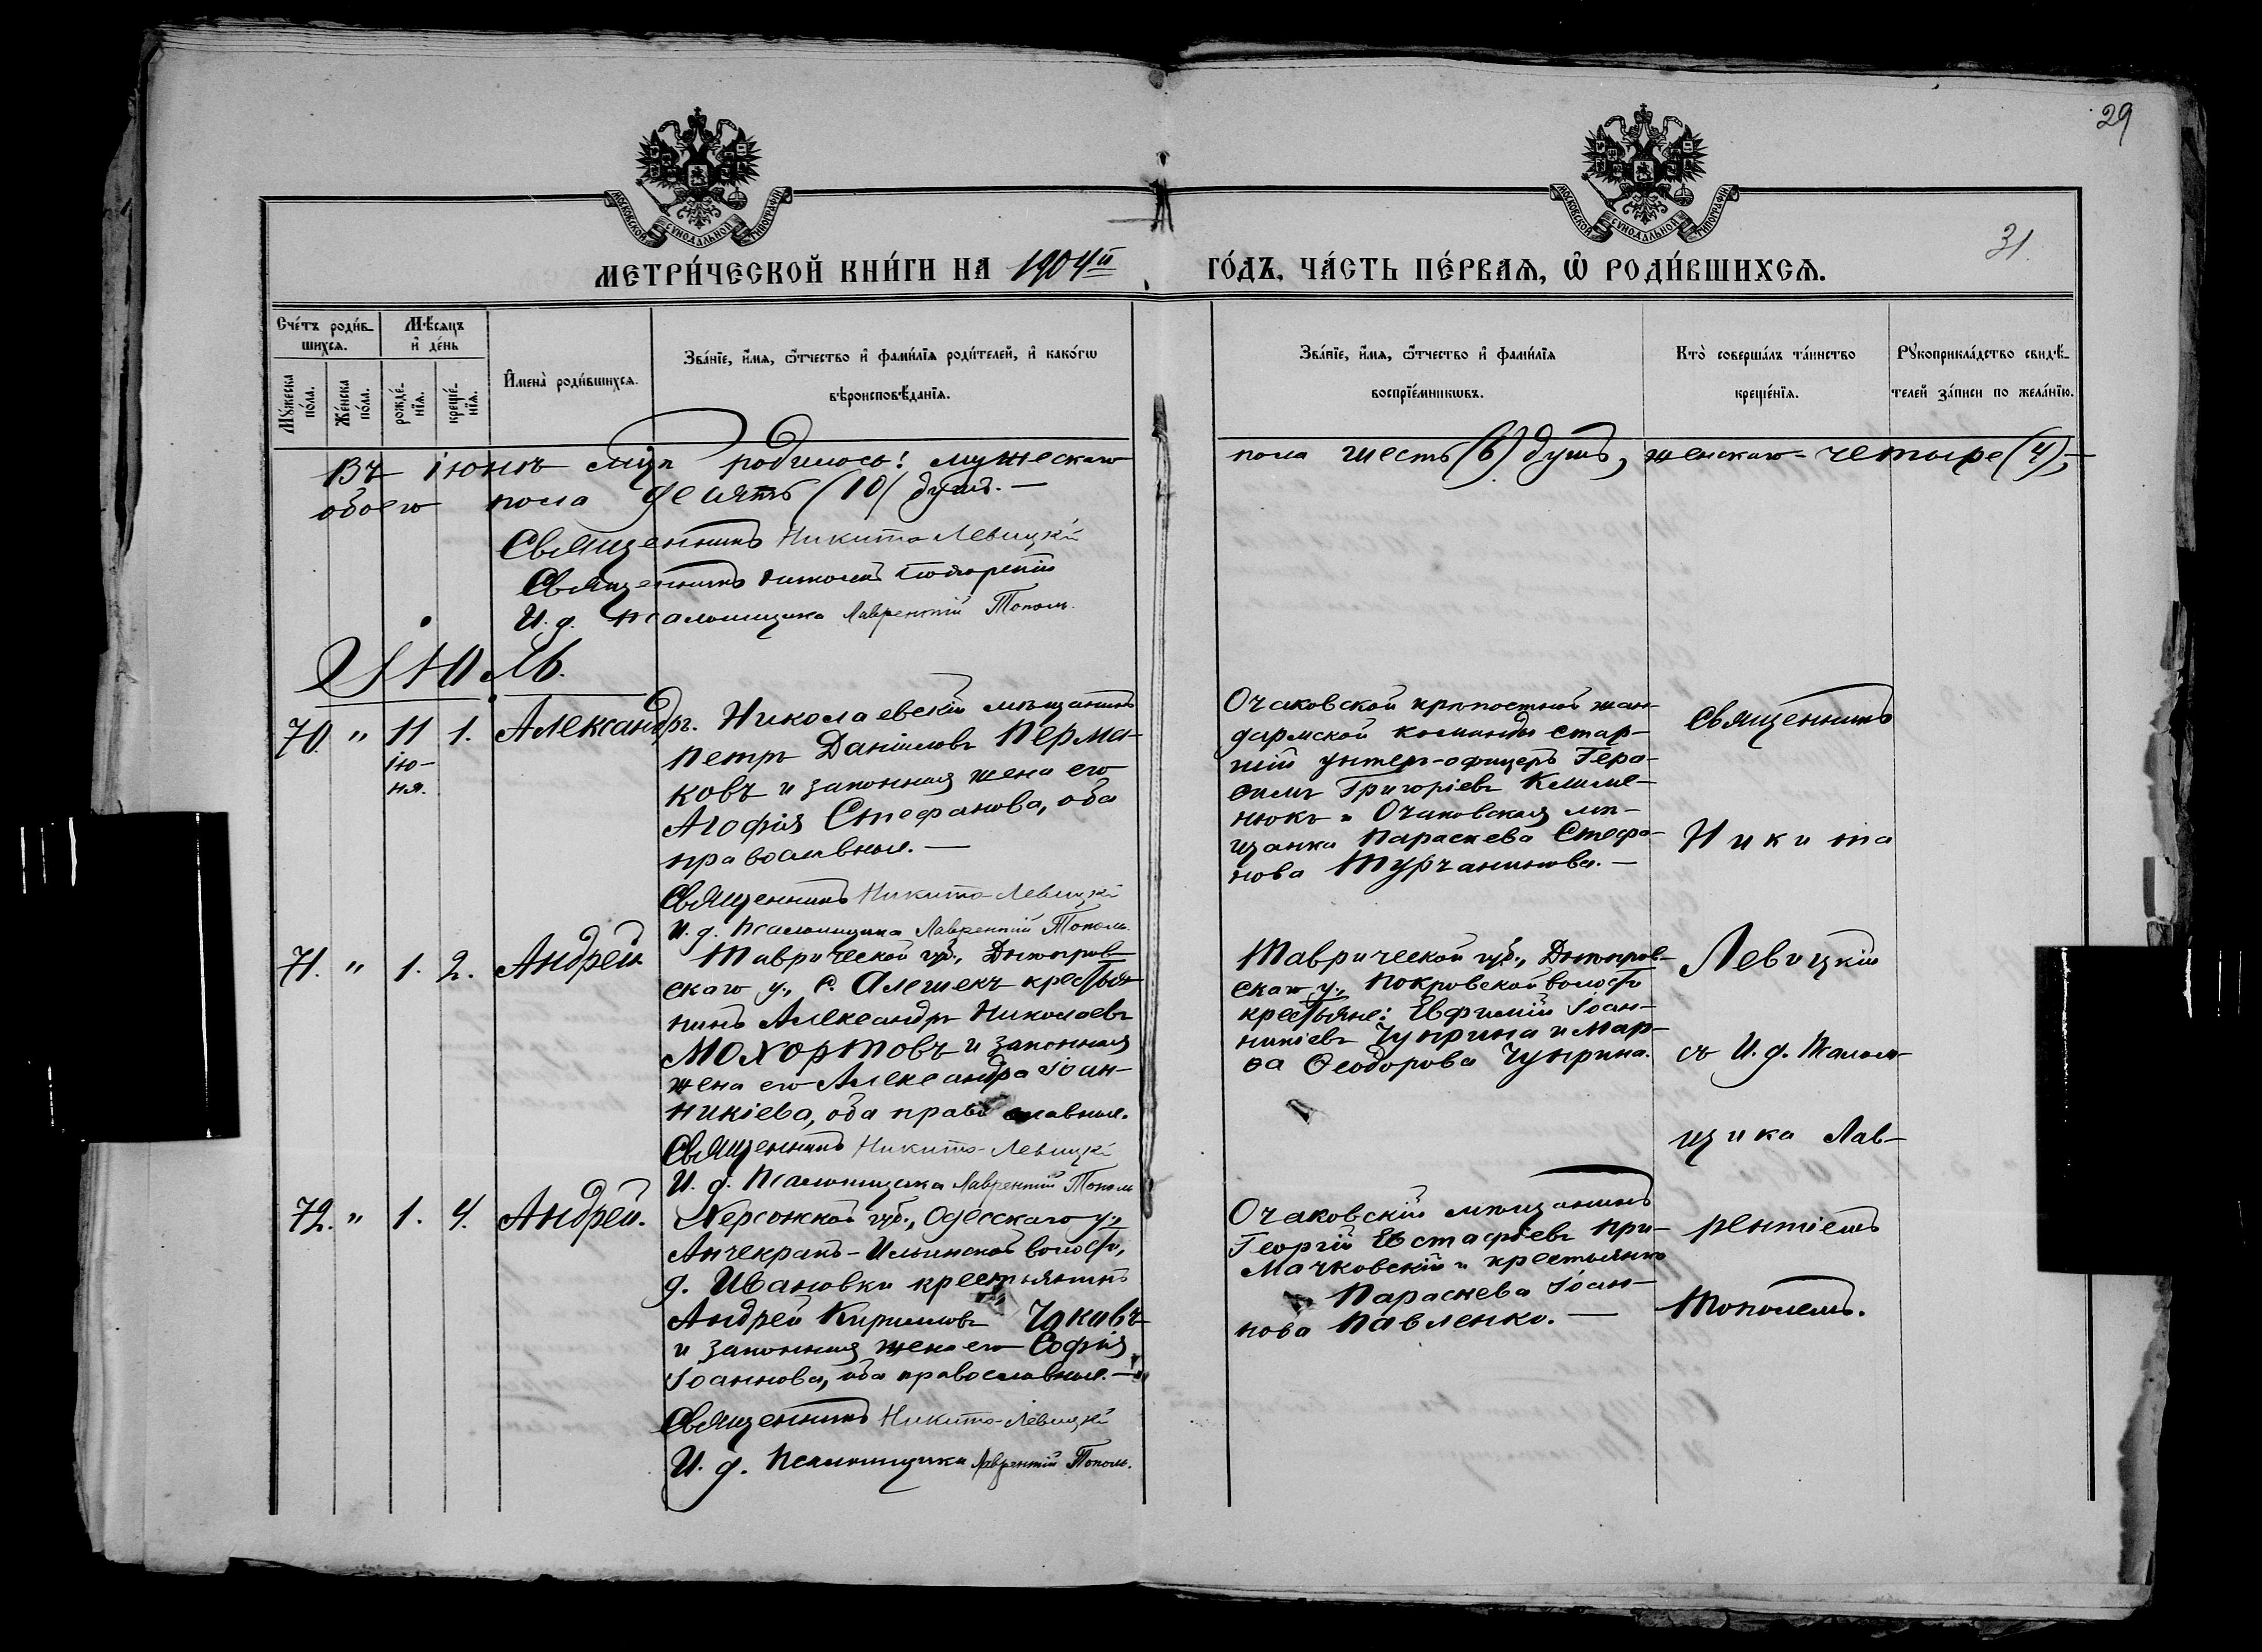 29
31.
МОСКОВСКОЙ СѴНОДАЛЬНОЙ ТИПОГРАФІИ
МОСКОВСКОЙ СѴНОДАЛЬНОЙ ТИПОГРАФІИ
МЕТРИ́ЧЕСКОЙ КНИ́ГИ НА 1904й ГО́ДЪ, ЧА́СТЬ ПЕ́РВАѦ, Ѡ РОДИ́ВШИХСѦ.
Сче́тъ роди́в-
шихсѧ.
Мѣ́сѧцъ
и де́нь
Мꙋ́жеска по́ла.
Же́нска по́ла.
рожде́-
нїѧ.
креще́-
нїѧ.
Имена̀ роди́вшихсѧ.
Зва́нїе, и́мѧ, ѻ҆́тчество и҆ фами́лїѧ роди́телей, и҆ како́гѡ
вѣроисповѣ́данїѧ.
Зва́нїе, и́мѧ, ѻ҆́тчество и҆ фами́лїѧ
воспрїе́мникѡвъ.
Кто̀ соверша́лъ та́инство
креще́нїѧ.
Рꙋкоприкла́дство свидѣ́-
телей за́писи по жела́нїю.
Въ іюнѣ мцѣ родилось: мужескаго пола шесть (6) душъ, женскаго - четыре (4), -
обоего пола десять (10) душъ. -
Священникъ Никита Левицкій
Священникъ
И. д. псаломщика Лаврентій Тополь.
Іюль.
70. " 11 1. Александръ.
ію-
ня.
Николаевскій мѣщанинъ
Петръ Даніиловъ Перма-
ковъ и законная жена его
Агафія Стефанова, оба
православные. -
Священникъ Никита Левицкій
И. д. псаломщика Лаврентій Тополь.
Очаковской крѣпостной жан-
дармской команды стар-
шій унтеръ-офицеръ Гера-
симъ Григоріевъ Климе-
нюкъ и Очаковская мѣ-
щанка Параскева Стефа-
нова Турчанинова. -
Священникъ
Никита
Левицкій
съ И. д. псалом-
щика Лав-
рентіемъ
Тополемъ.
71. " 1. 2. Андрей
Таврической губ., Днѣпров-
скаго у., с. Алешекъ крестья-
нинъ Александръ Николаевъ
Мохортовъ и законная
жена его Александра Іоан-
никіева, оба православные.
Священникъ Никита Левицкій
И. д. псаломщика Лаврентій Тополь
Таврической губ., Днѣпров-
скаго у., Покровской волости
крестьяне: Евфимій Іоан-
никіевъ Чуприна и Мар-
ѳа Ѳеодорова Чуприна.
72. " 1. 4. Андрей.
Херсонской губ., Одесскаго у.,
Анчекракъ-Ильинской волости,
д. Ивановки крестьянинъ
Андрей Кирилловъ
и законная жена его Софія
Іоаннова, оба православные. -
Священникъ Никита Левицкій
И. д. псаломщика Лаврентій Тополь.
Очаковскій мѣщанинъ
Георгій Евстафіевъ При-
мачковскій и крестьянка
Параскева Іоан-
нова Павленко. -